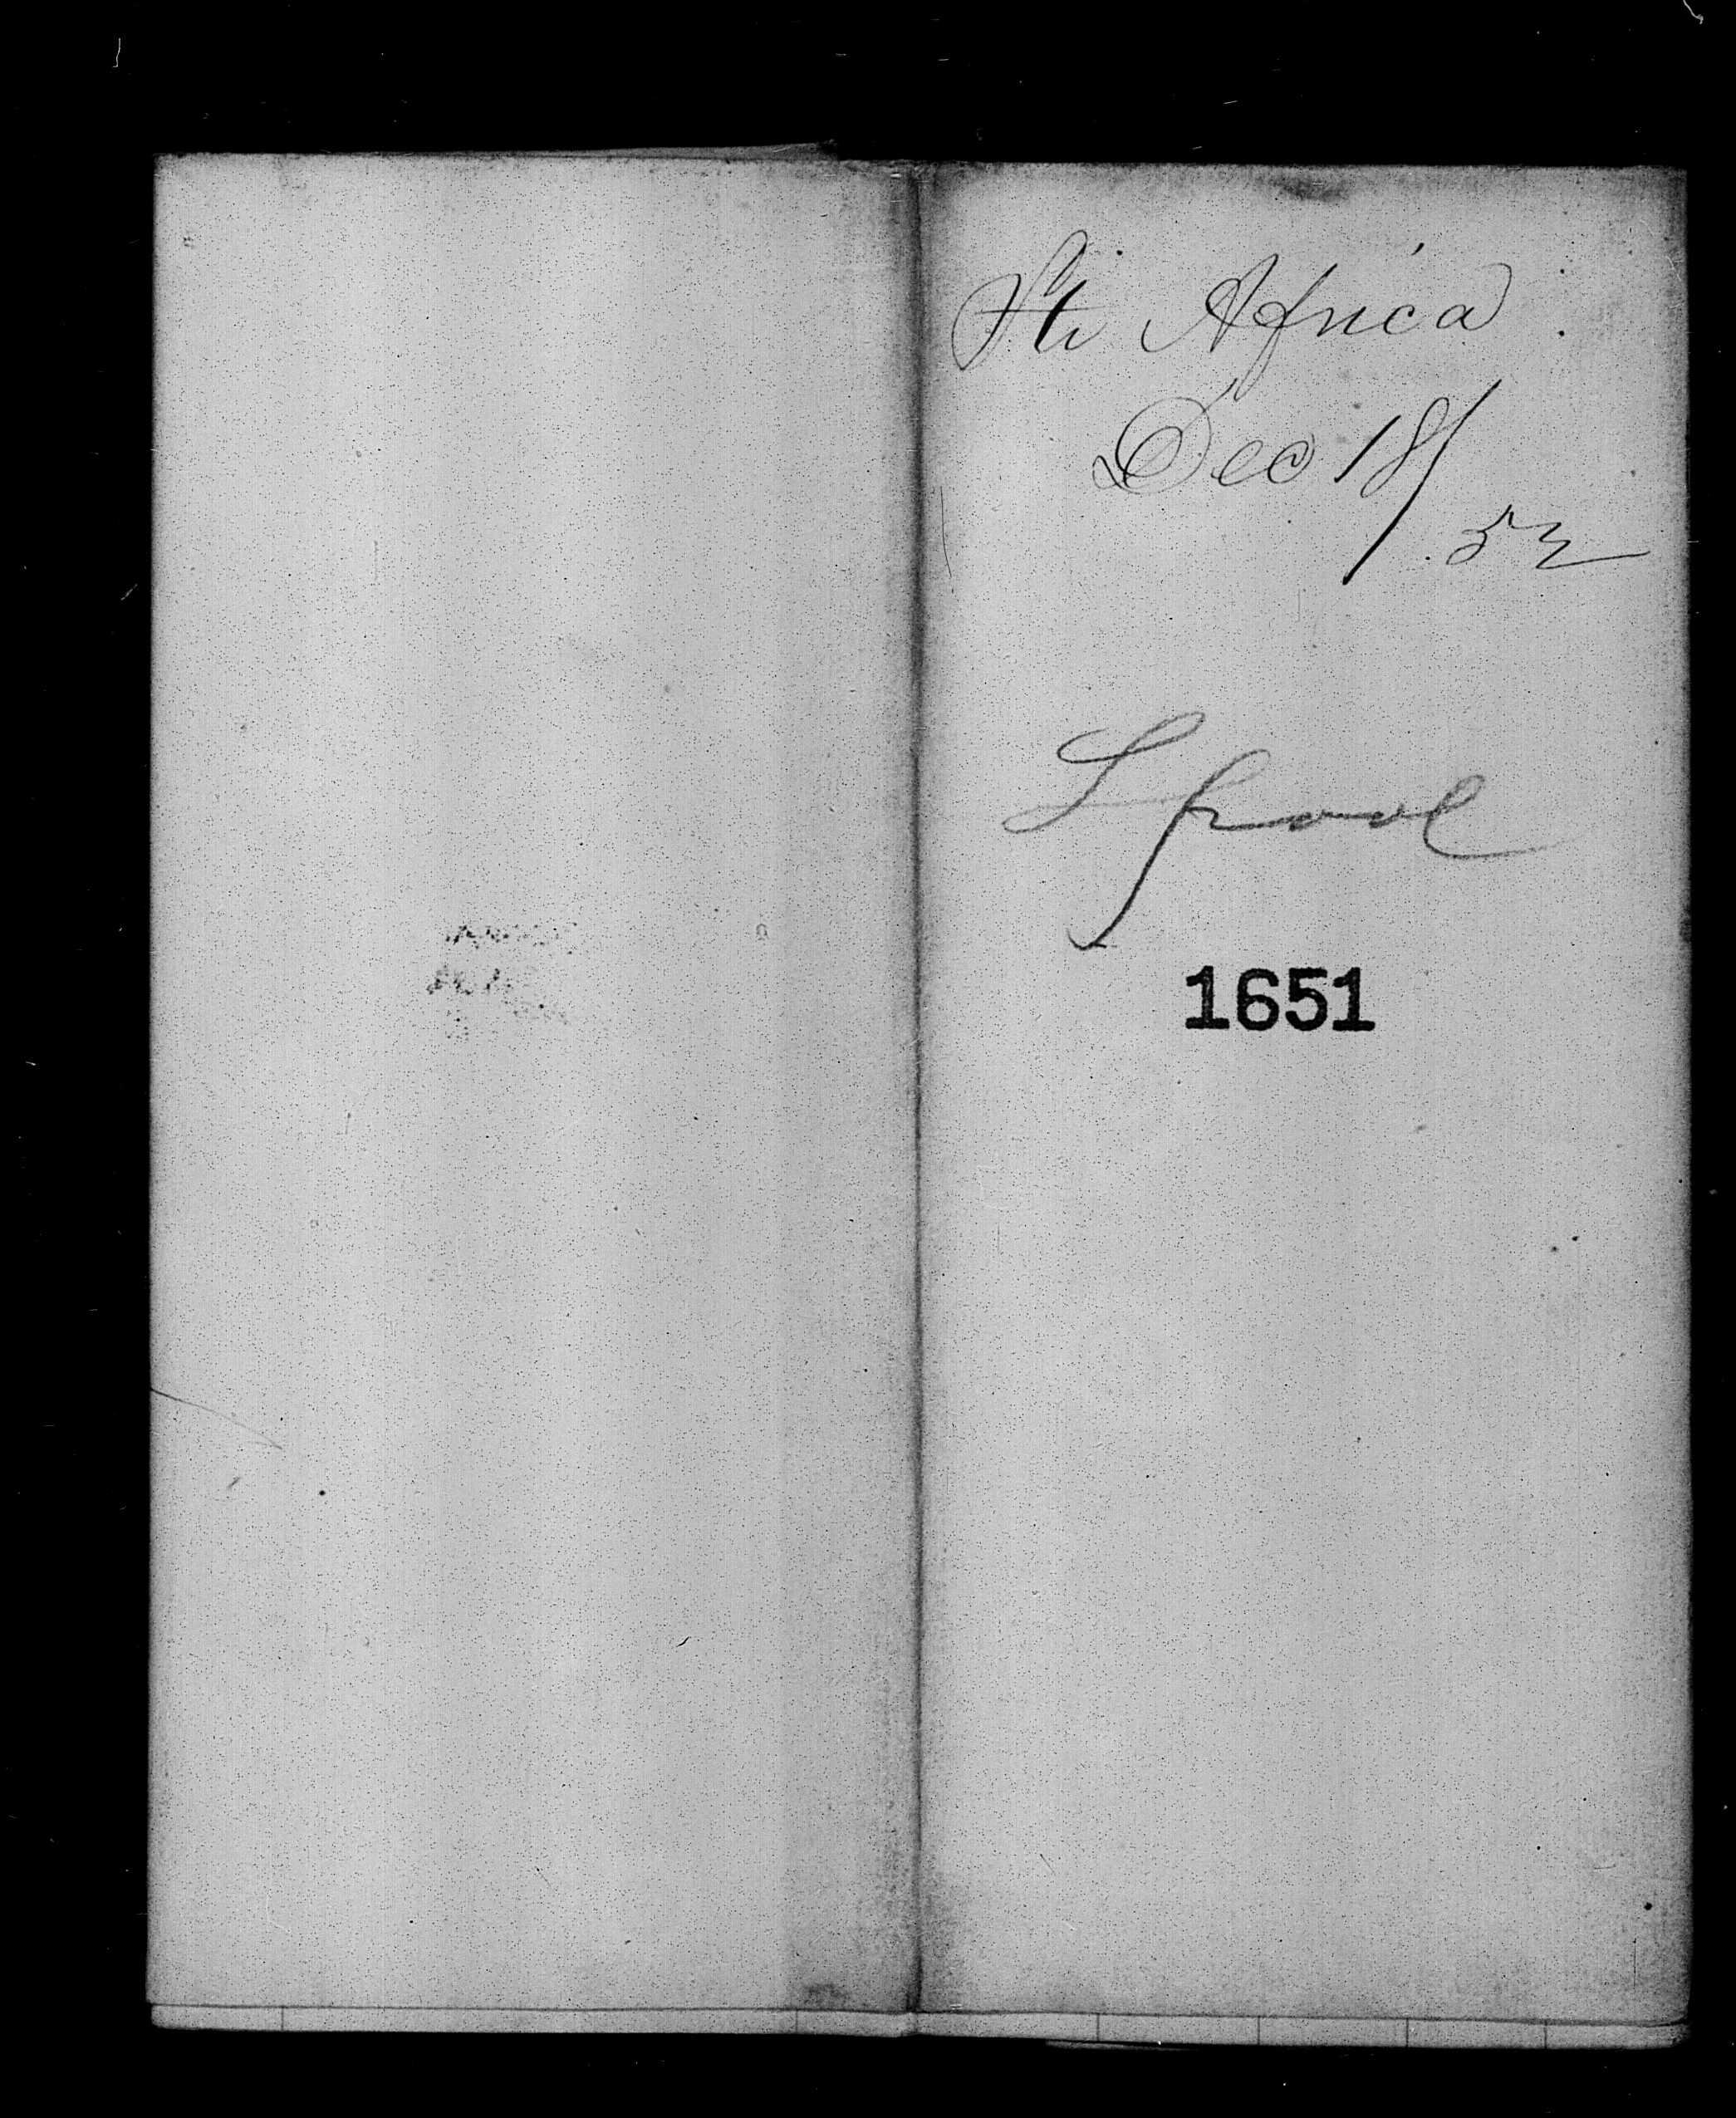 Str Africa
Dec 18/
52
Lpool
1651